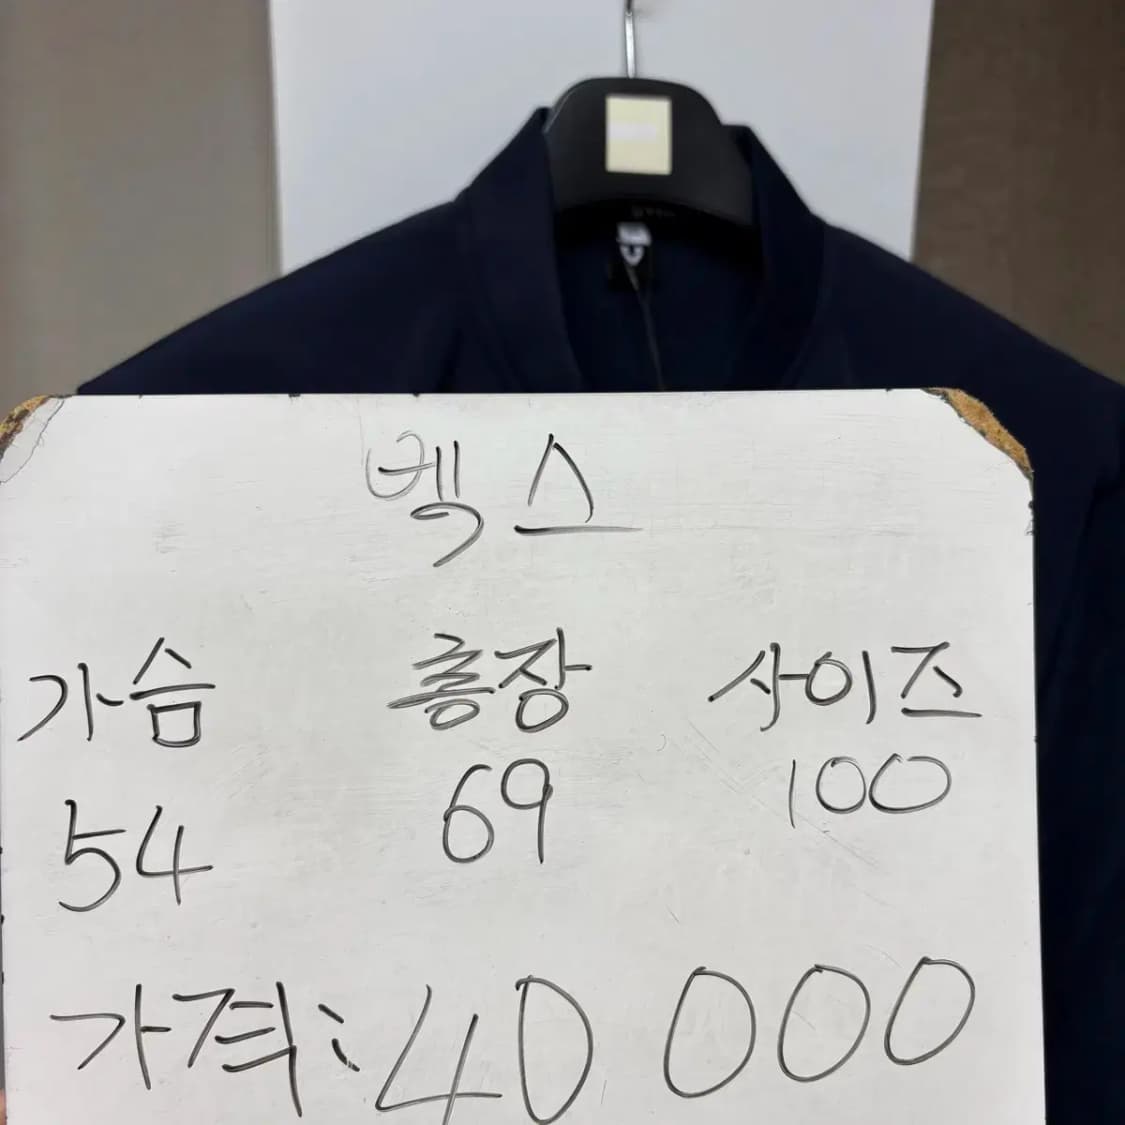 벡스
가슴 총장 사이즈
54 69 100
가격: 40000